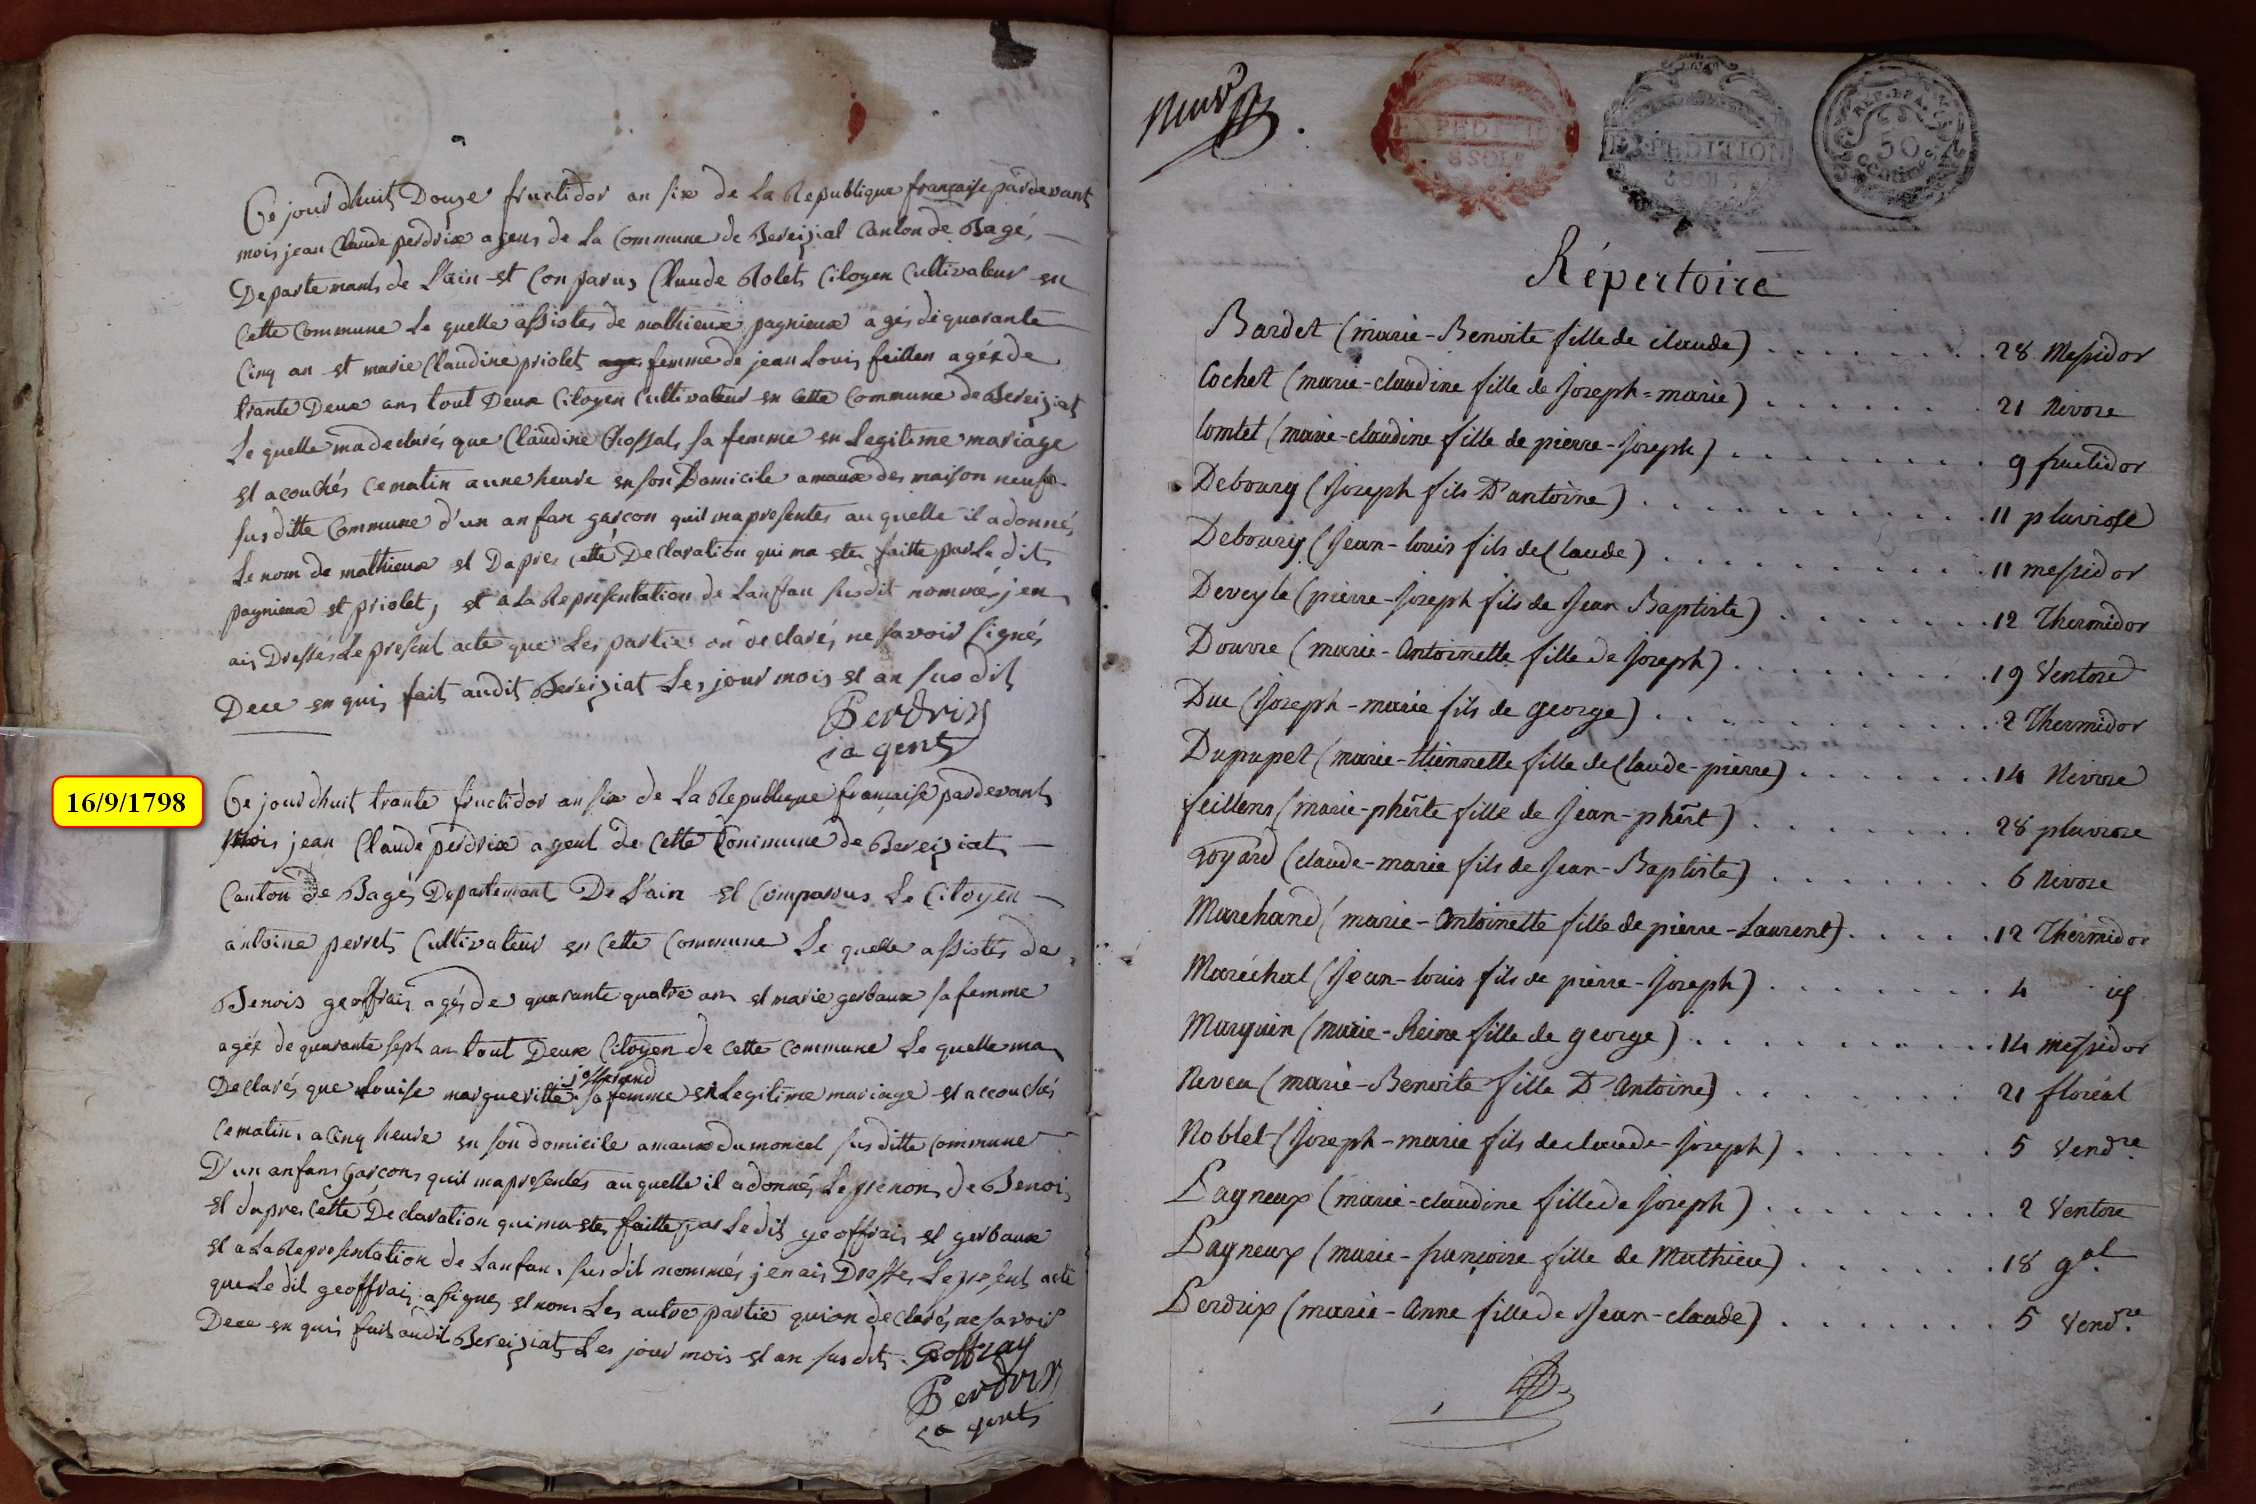 Ce jourdhuit Douze fructidor an six de la Republique française pardevant
mois jean Claude perdrix agens de la Commune de Bereiziat Canton de Bagé,
Departemants de L'ain est Comparus Claude Rolets Citoyen Cultivateur en
Cette Commune Le quelle assistes de mathieux pagnieux agés de quarante
Cinq an et marie Claudine priolet age femme de jean Louis feillen agéx de
trante Deux ans tout Deux Citoyen Cultivateur en Cette Commune de Bereiziat
Le quelle ma declarés que Claudine Chossats sa femme en Legitime mariage
est acouchés Ce matin a une heure en son Domicile a maux des maison neufve
susditte Commune d'un anfan garcon quil ma presentes au quelle il a donné,
Le nom de mathieux et Dapres cette Declaration qui ma ete faitte par Le dit
pagnieux et priolet, et a La Representation de Lanfan susdit nommés, jen
ais Dressés Le present acte que Les partie on declarés ne savoir signés
Dece en quis fait audit Bereiziat Les jour mois et an susdit
Perdrix
agents
16/9/1798
Ce jourdhuit trante fructidor an six de La Republique francaise pardevants
mois jean Claude perdrix agent de Cette Commune de Bereiziat
Canton de Bagés Departemant De L'ain est Comparous Le Citoyen
antoine perrets Cultivateur en Cette Commune Le quelle assistés de
Benois geoffrais agés de quarante quatre ans et marie gerbaux sa femme
agéx de quarante sept an tout Deux Citoyen de cette commune Le quelle ma
josserand
Declarés que Louise margueritte sa femme en Legitime mariage est accouchés
Ce matin, a Cinq heure en son domicile a maux du moncel susditte commune
D'un anfans Garcons quil ma presentes au quelle il a donnés Le prenom de Benoi
et dapres Cette Declaration qui ma ete, faitte par Le dis geoffrais et gerbaux
et a La Representation de Lanfan, susdit nommés jen ais Dresses Le present acte
que Le dit geoffrais a signes et nom Les autre partie quion declarés ne savoir
Dece en quis fait audit Bereiziat Les jour mois et an susdits. Geoffray
Perdrix
agents
Neuv
EXPEDITION
8 SOLS
EXPEDITION
REP. FRA.
50
CENTIMES
Répertoire
Bardet (marie-Benoite fille de claude) . . . . . . . 28 Messidor
Cochet (marie-claudine fille de Joseph=marie) . . . . . . . 21 Nivose
Comtet (marie-claudine fille de pierre-Joseph) . . . . . . . . 9 fructidor
Debourg (Joseph fils D'antoine) . . . . . . . . . . 11 pluviose
Debourg (Jean-louis fils de Claude) . . . . . . . . . . 11 messidor
Deveyle (pierre-Joseph fils de Jean Baptiste) . . . . . . . 12 Thermidor
Douvre (marie-Antoinette fille de Joseph) . . . . . . . . 19 Ventose
Duc (Joseph-marie fils de george) . . . . . . . . . . 2 Thermidor
Dupupet (marie-Etiennette fille de Claude-pierre) . . . . . . . 14 Nivose
feillens (marie-phert̃e fille de Jean-pher̃t) . . . . . . . . 28 pluviose
Goyard (claude-marie fils de Jean-Baptiste) . . . . . . . 6 Nivose
Marchand (marie-Antoinette fille de pierre-Laurent) . . . . . 12 Thérmidor
Maréchal (Jean-louis fils de pierre-Joseph) . . . . . . . 4
Marguin (marie-Reine fille de george) . . . . . . . . . 14 messidor
Neveu (marie-Benoite fille D'Antoine) . . . . . . . . 21 floréal
Noblet (Joseph-marie fils de claude-Joseph) . . . . . . 5 Vend.re
Pagneux (marie-claudine fille de Joseph) . . . . . . . . 2 Ventose
Pagneux (marie-françoise fille de Mathieu) . . . . . . . 18 g.al
Perdrix (marie-Anne fille de Jean-claude) . . . . . . . 5 Vend.re